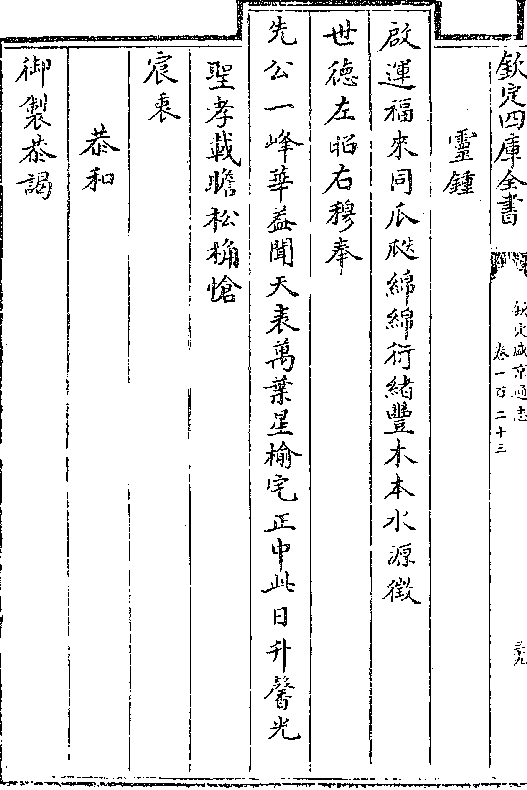 欽定四庫全書
欽定盛京通志
卷一百二十三
三九
靈鍾
啟運福來同瓜瓞綿綿衍緒豐木本水源徵
世德左昭右穆奉
先公一峰華葢聞天表萬葉星榆宅正中此日升馨光
聖孝載瞻松桷愴
宸衷
恭和
御製恭謁